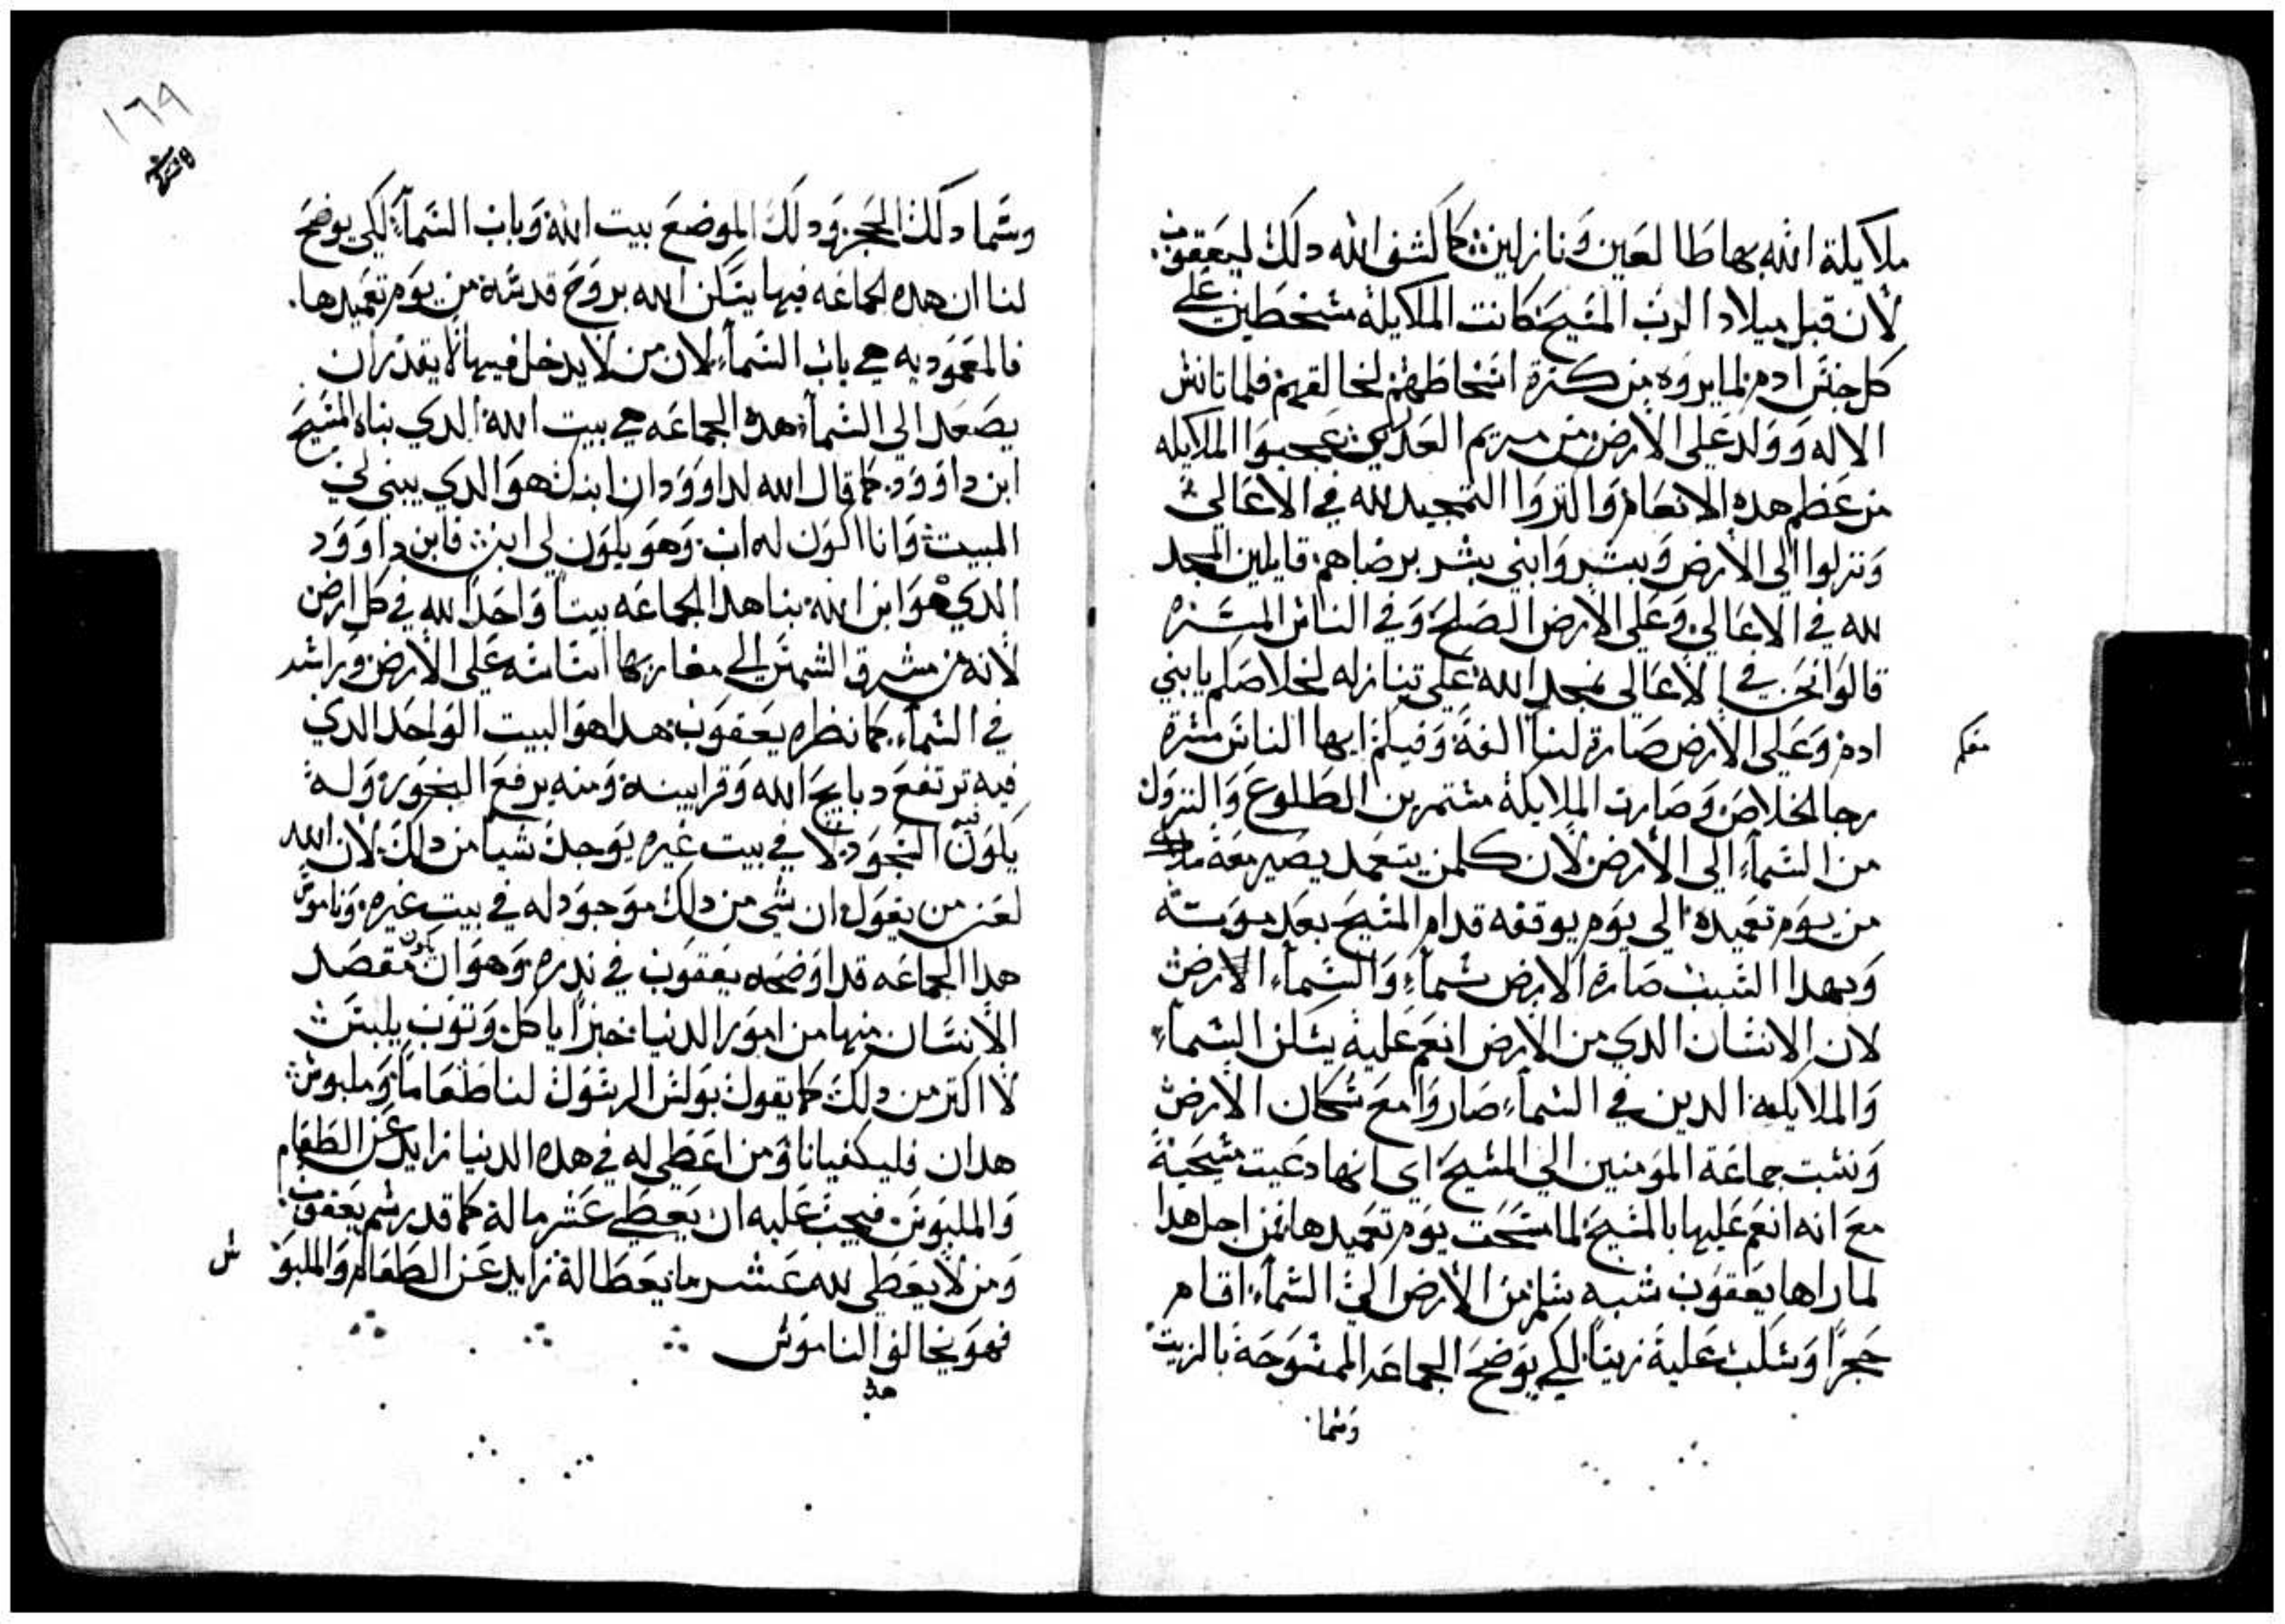 ملايكة الله بها طالعين ونازلين كما كشف الله دلك ليعقوب
لان قبل ميلاد الرب المسيح كانت الملايكة مسخطين على
كل جنس ادم لما يروه من كترة اسخاطهم لخالقهم فلما تانس
الاله وولد على الارض من مريم العدري عجبوا الملايكه
من عظم هده الانعام والتروا التمجيد لله في الاعالي
ونزلوا الى الارض وبشروا بني بشر برضاهم قايلين المجد
لله في الاعالي وعلى الارض الصلح وفي الناس المسره
قالوا نحن في الاعالي نمجد الله على تنازله لخلاصكم يا بني
ادم وعلى الارض صارة لنا الفة وفيكم ايها الناس مسرة
منكم
رجا الخلاص وصارت الملايكة مستمرين الطلوع والنزول
من السماء الى الارض لان كلمن يتعمد يصير معة ملاك
من يوم تعميده الى يوم يوقفه قدام المسيح بعد موته
وبهدا السبب صارة الارض سماء والسماء الارض
لان الانسان الدي من الارض انعم علية بسكن السماء
والملايكه الدين في السماء صاروا مع سكان الارض
ونسبت جماعة المومنين الى المسيح اي انها دعيت مسيحية
مع انه انعم عليها بالمسيح لما مسحت يوم تعميدها فمن اجل هدا
لما راها يعقوب شبه سلم من الارض الى السماء اقام
حجرا وسكب علية زيتا لكي يوضح الجماعه الممسوحة بالزيت
وسما
١٦٩
وسما دلك الحجر ودلك الموضع بيت الله وباب السماء لكي يوضح
لنا ان هده الجماعه فيها يسكن الله بروح قدسة من يوم تعميدها
فالمعموديه هي باب السماء لان من لا يدخل فيها لا يقدر ان
يصعد الى السماء هده الجماعه هي بيت الله الدي بناه المسيح
ابن داوود كما قال الله لداوود ان ابنك هو الدي يبني لي
البيت وانا اكون له اب وهو يكون لي ابن فابن داوود
الدي هو ابن الله بنا هدا الجماعه بيتا واحدا لله في كل ارض
لانه من مشرق الشمس الى مغاربها اساسه على الارض وراسه
في السماء كما نظره يعقوب هدا هو البيت الواحد الدي
فيه ترتفع دبايح الله وقرابينه ومنه يرفع البخور وله
يكون فيه السجود لا في بيت غيره يوجد شيا من دلك لان الله
لعن من يقول ان شي من دلك موجود له في بيت غيره وناموس
هدا الجماعه قد اوضحه يعقوب في ندره وهو ان يكون مقصد
الانسان منها من امور الدنيا خبزا ياكل وتوب يلبس
لا اكتر من دلك كما يقول بولس الرسول لنا طعاما وملبوس
هدان فليكفيانا ومن اعطي له في هده الدنيا زايد عن الطعام
والملبوس فيجب عليه ان يعطي عشر مالة كما قد رسم يعقوب
ومن لا يعطي لله عشر ما يعطا لة زايد عن الطعام والملبو
س
فهو يخالف الناموس